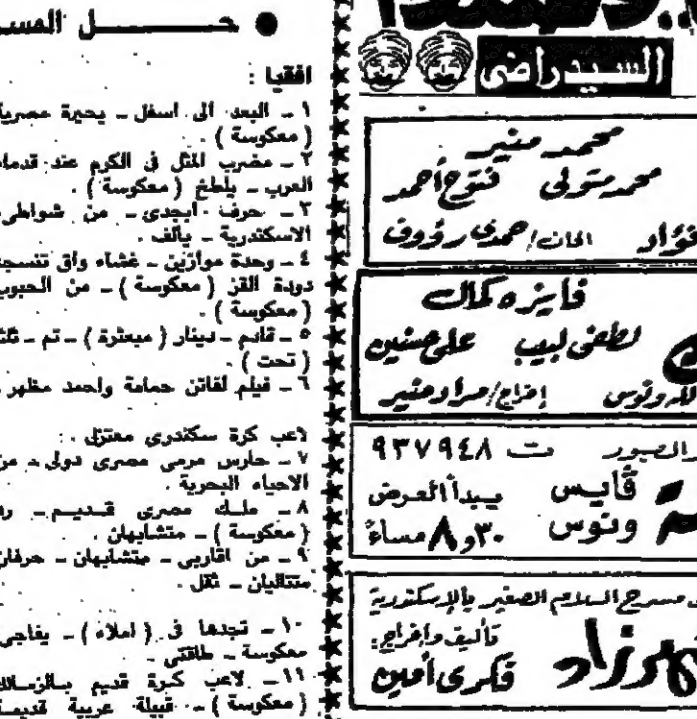 ● حـــــــــل المسـ
افقيا :
١ ـ البعد الى اسفل ـ بحيرة مصرية
( معكوسة ) .
٢ ـ مضرب المثل فى الكرم عند قدماء
العرب ـ يلطخ ( معكوسة ) .
٣ ـ حرف ابجدى ـ من شواطىء
الاسكندرية ـ يألف .
٤ ـ وحدة موازين ـ غشاء واق تنسجه
دودة القز ( معكوسة ) ـ من الحبوب
( معكوسة ) .
٥ ـ قادم ـ دينار ( مبعثرة ) ـ تم ـ ثلثا
( تحت ) .
٦ ـ فيلم لفاتن حمامة واحمد مظهر ـ
لاعب كرة سكندرى معتزل .
٧ ـ حارس مرمى مصرى دولى ـ من
الاحياء البحرية .
٨ ـ ملك مصرى قديم ـ
( معكوسة ) ـ متشابهان .
٩ ـ من اقاربى ـ متشابهان ـ حرفان
متتاليان ـ ثقل .
١٠ ـ تجدها فى ( املاء ) ـ يفاجى
معكوسة ـ طاقتى .
١١ ـ لاعب كرة قديم بالزمالك
( معكوسة ) ـ قبيلة عربية قديمة
السيد راضى
محمد منير
محمد متولى فتوح أحمد
فؤاد الحان/حمدى رؤوف
فايزه كمال
لطفى لبيب على حسنين
الله ونوس إخراج/مراد منير
ت ٩٣٧٩٤٨
يبدأ العرض
ونوس ٨٫٣٠ مساءً
مسرح السلام الصغير بالإسكندرية
تأليف وإخراج:
هرزاد فكرى أمين